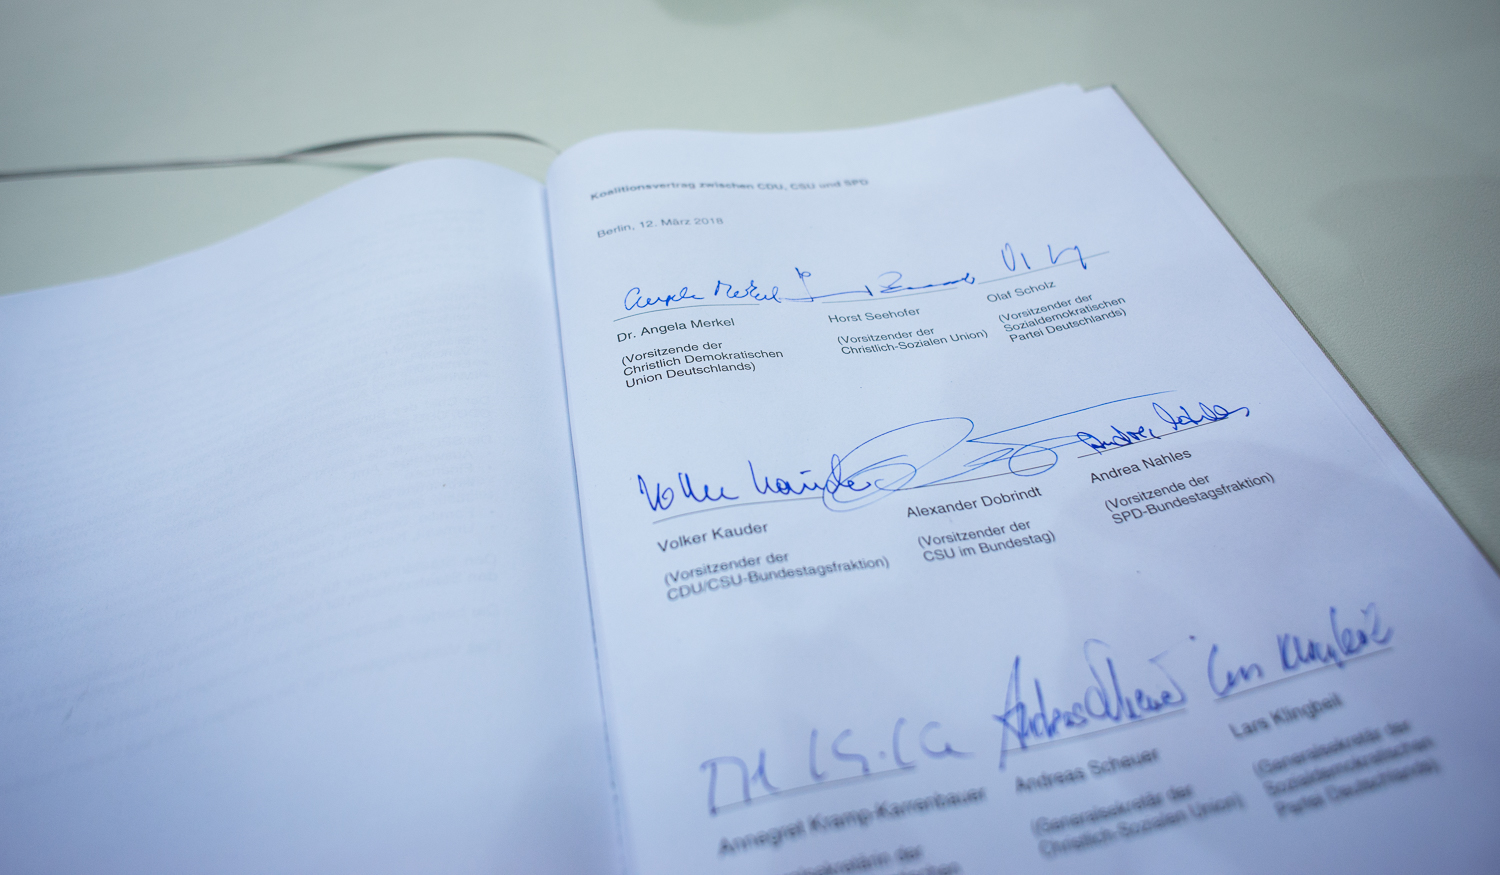 Koalitionsvertrag zwischen CDU, CSU und SPD
Berlin, 12. März 2018
Angela Merkel
Dr. Angela Merkel
(Vorsitzende der
Christlich Demokratischen
Union Deutschlands)
Horst Seehofer
(Vorsitzender der
Christlich-Sozialen Union)
Olaf Scholz
(Vorsitzender der
Sozialdemokratischen
Partei Deutschlands)
Volker Kauder
Volker Kauder
(Vorsitzender der
CDU/CSU-Bundestagsfraktion)
Alexander Dobrindt
(Vorsitzender der
CSU im Bundestag)
Andrea Nahles
Andrea Nahles
(Vorsitzende der
SPD-Bundestagsfraktion)
Annegret Kramp-Karrenbauer
Andreas Scheuer
Andreas Scheuer
(Generalsekretär der
Christlich-Sozialen Union)
Lars Klingbeil
Lars Klingbeil
(Generalsekretär der
Sozialdemokratischen
Partei Deutschlands)